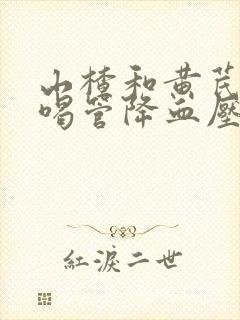 山楂和黄芪
喝管降血壓
紅淚二世